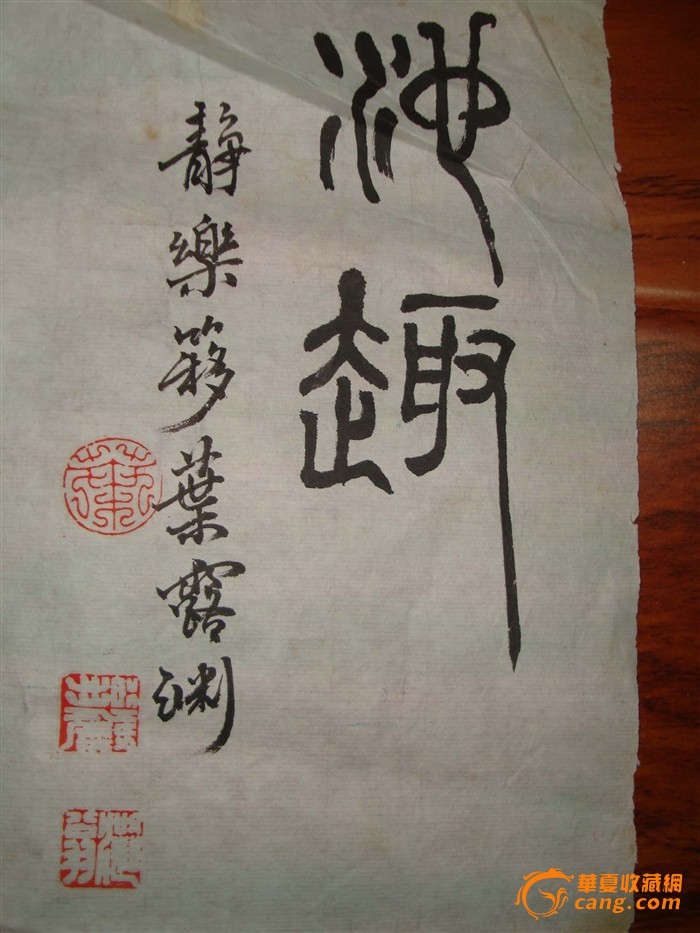 池趣
静樂簃葉露渊
華夏收藏網
cang.com